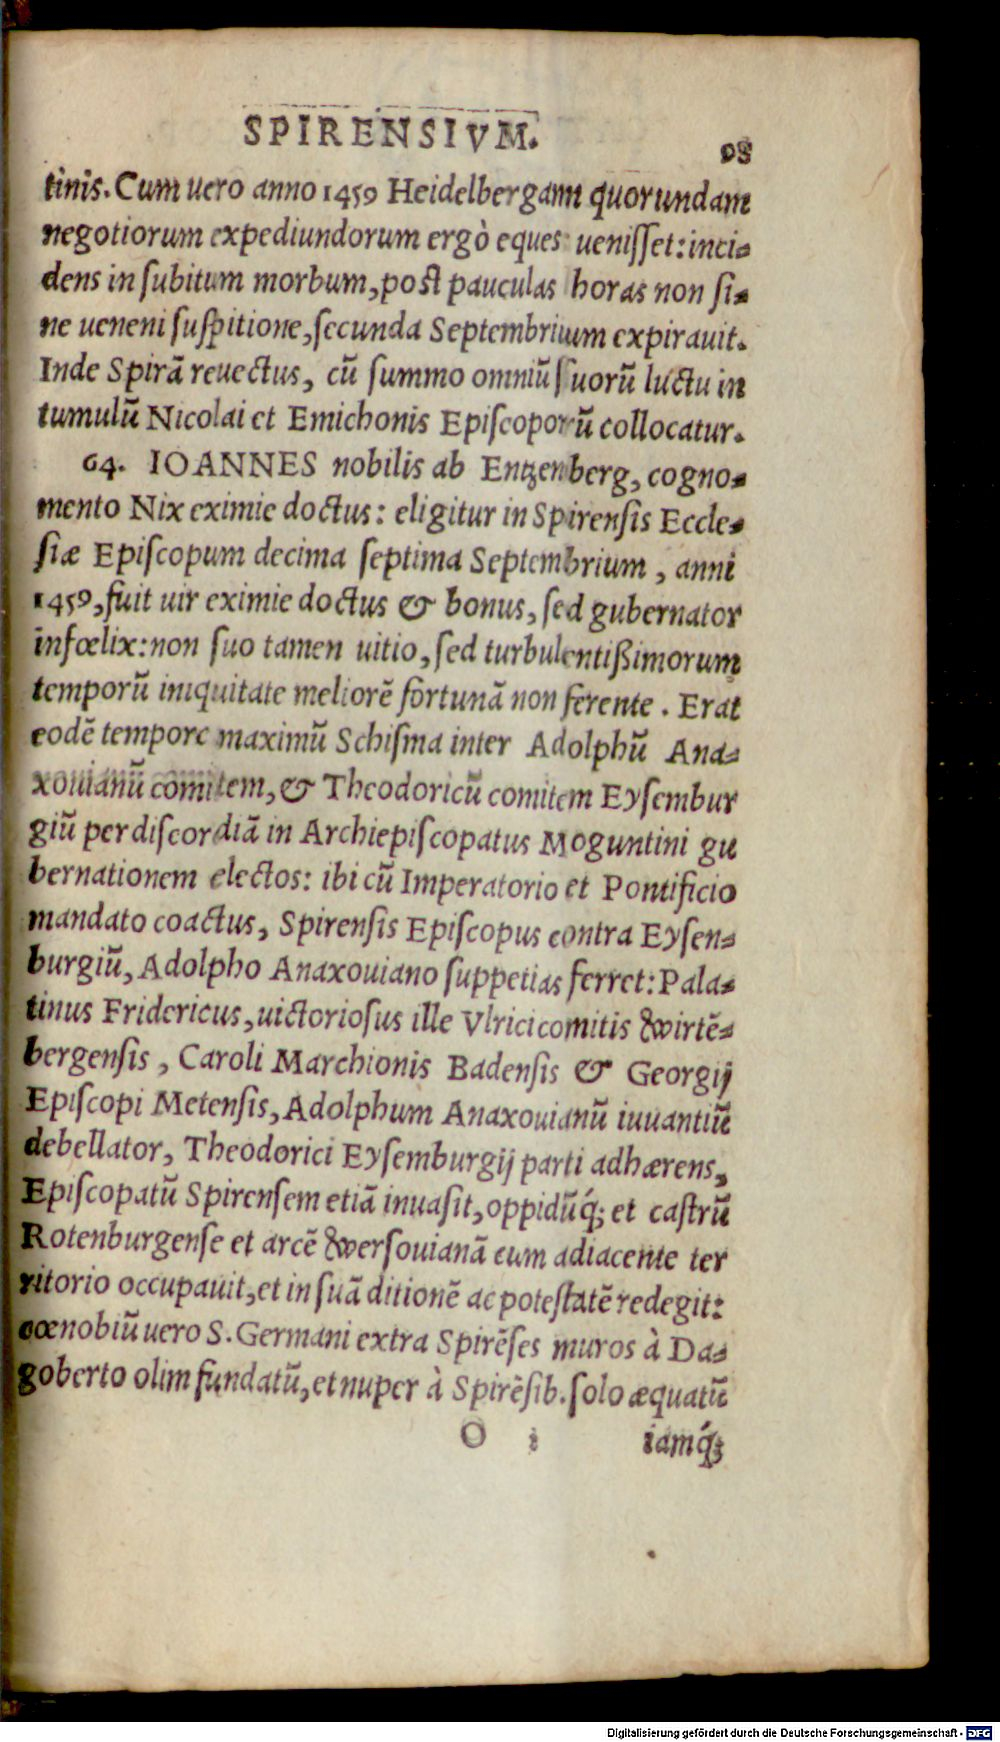 SPIRENSIVM.
98
tinis. Cum uero anno 1459 Heidelbergam quorundam
negotiorum expediundorum ergò eques uenisſet: inci⸗
dens in ſubitum morbum, poſt pauculas horas non ſi⸗
ne ueneni ſuſpitione, ſecunda Septembrium expirauit.
Inde Spirā reuectus, cū ſummo omniū ſuorū luctu in
tumulū Nicolai et Emichonis Epiſcoporū collocatur.
64. IOANNES nobilis ab Entzenberg, cogno⸗
mento Nix eximie doctus: eligitur in Spirenſis Eccle⸗
ſiæ Epiſcopum decima ſeptima Septembrium, anni
1459, fuit uir eximie doctus & bonus, ſed gubernator
infœlix: non ſuo tamen uitio, ſed turbulentißimorum
temporū iniquitate meliorē fortunā non ferente. Erat
eodē tempore maximū Schiſma inter Adolphū Ana⸗
xouianū comitem, & Theodoricū comitem Eyſembur
giū per diſcordiā in Archiepiſcopatus Moguntini gu
bernationem electos: ibi cū Imperatorio et Pontificio
mandato coactus, Spirenſis Epiſcopus contra Eyſen⸗
burgiū, Adolpho Anaxouiano ſuppetias ferret: Pala⸗
tinus Fridericus, uictorioſus ille Vlrici comitis Wirtē⸗
bergenſis, Caroli Marchionis Badenſis & Georgij
Epiſcopi Metenſis, Adolphum Anaxouianū iuuantiū
debellator, Theodorici Eyſemburgij parti adhærens,
Epiſcopatū Spirenſem etiā inuaſit, oppidūq́; et caſtrū
Rotenburgenſe et arcē Werſouianā cum adiacente ter
ritorio occupauit, et in ſuā ditionē ac poteſtatē redegit:
cœnobiū uero S. Germani extra Spirēſes muros à Da⸗
goberto olim fundatū, et nuper à Spirēſib. ſolo æquatū
O 2 iamq́;
Digitalisierung gefördert durch die Deutsche Forschungsgemeinschaft - DFG